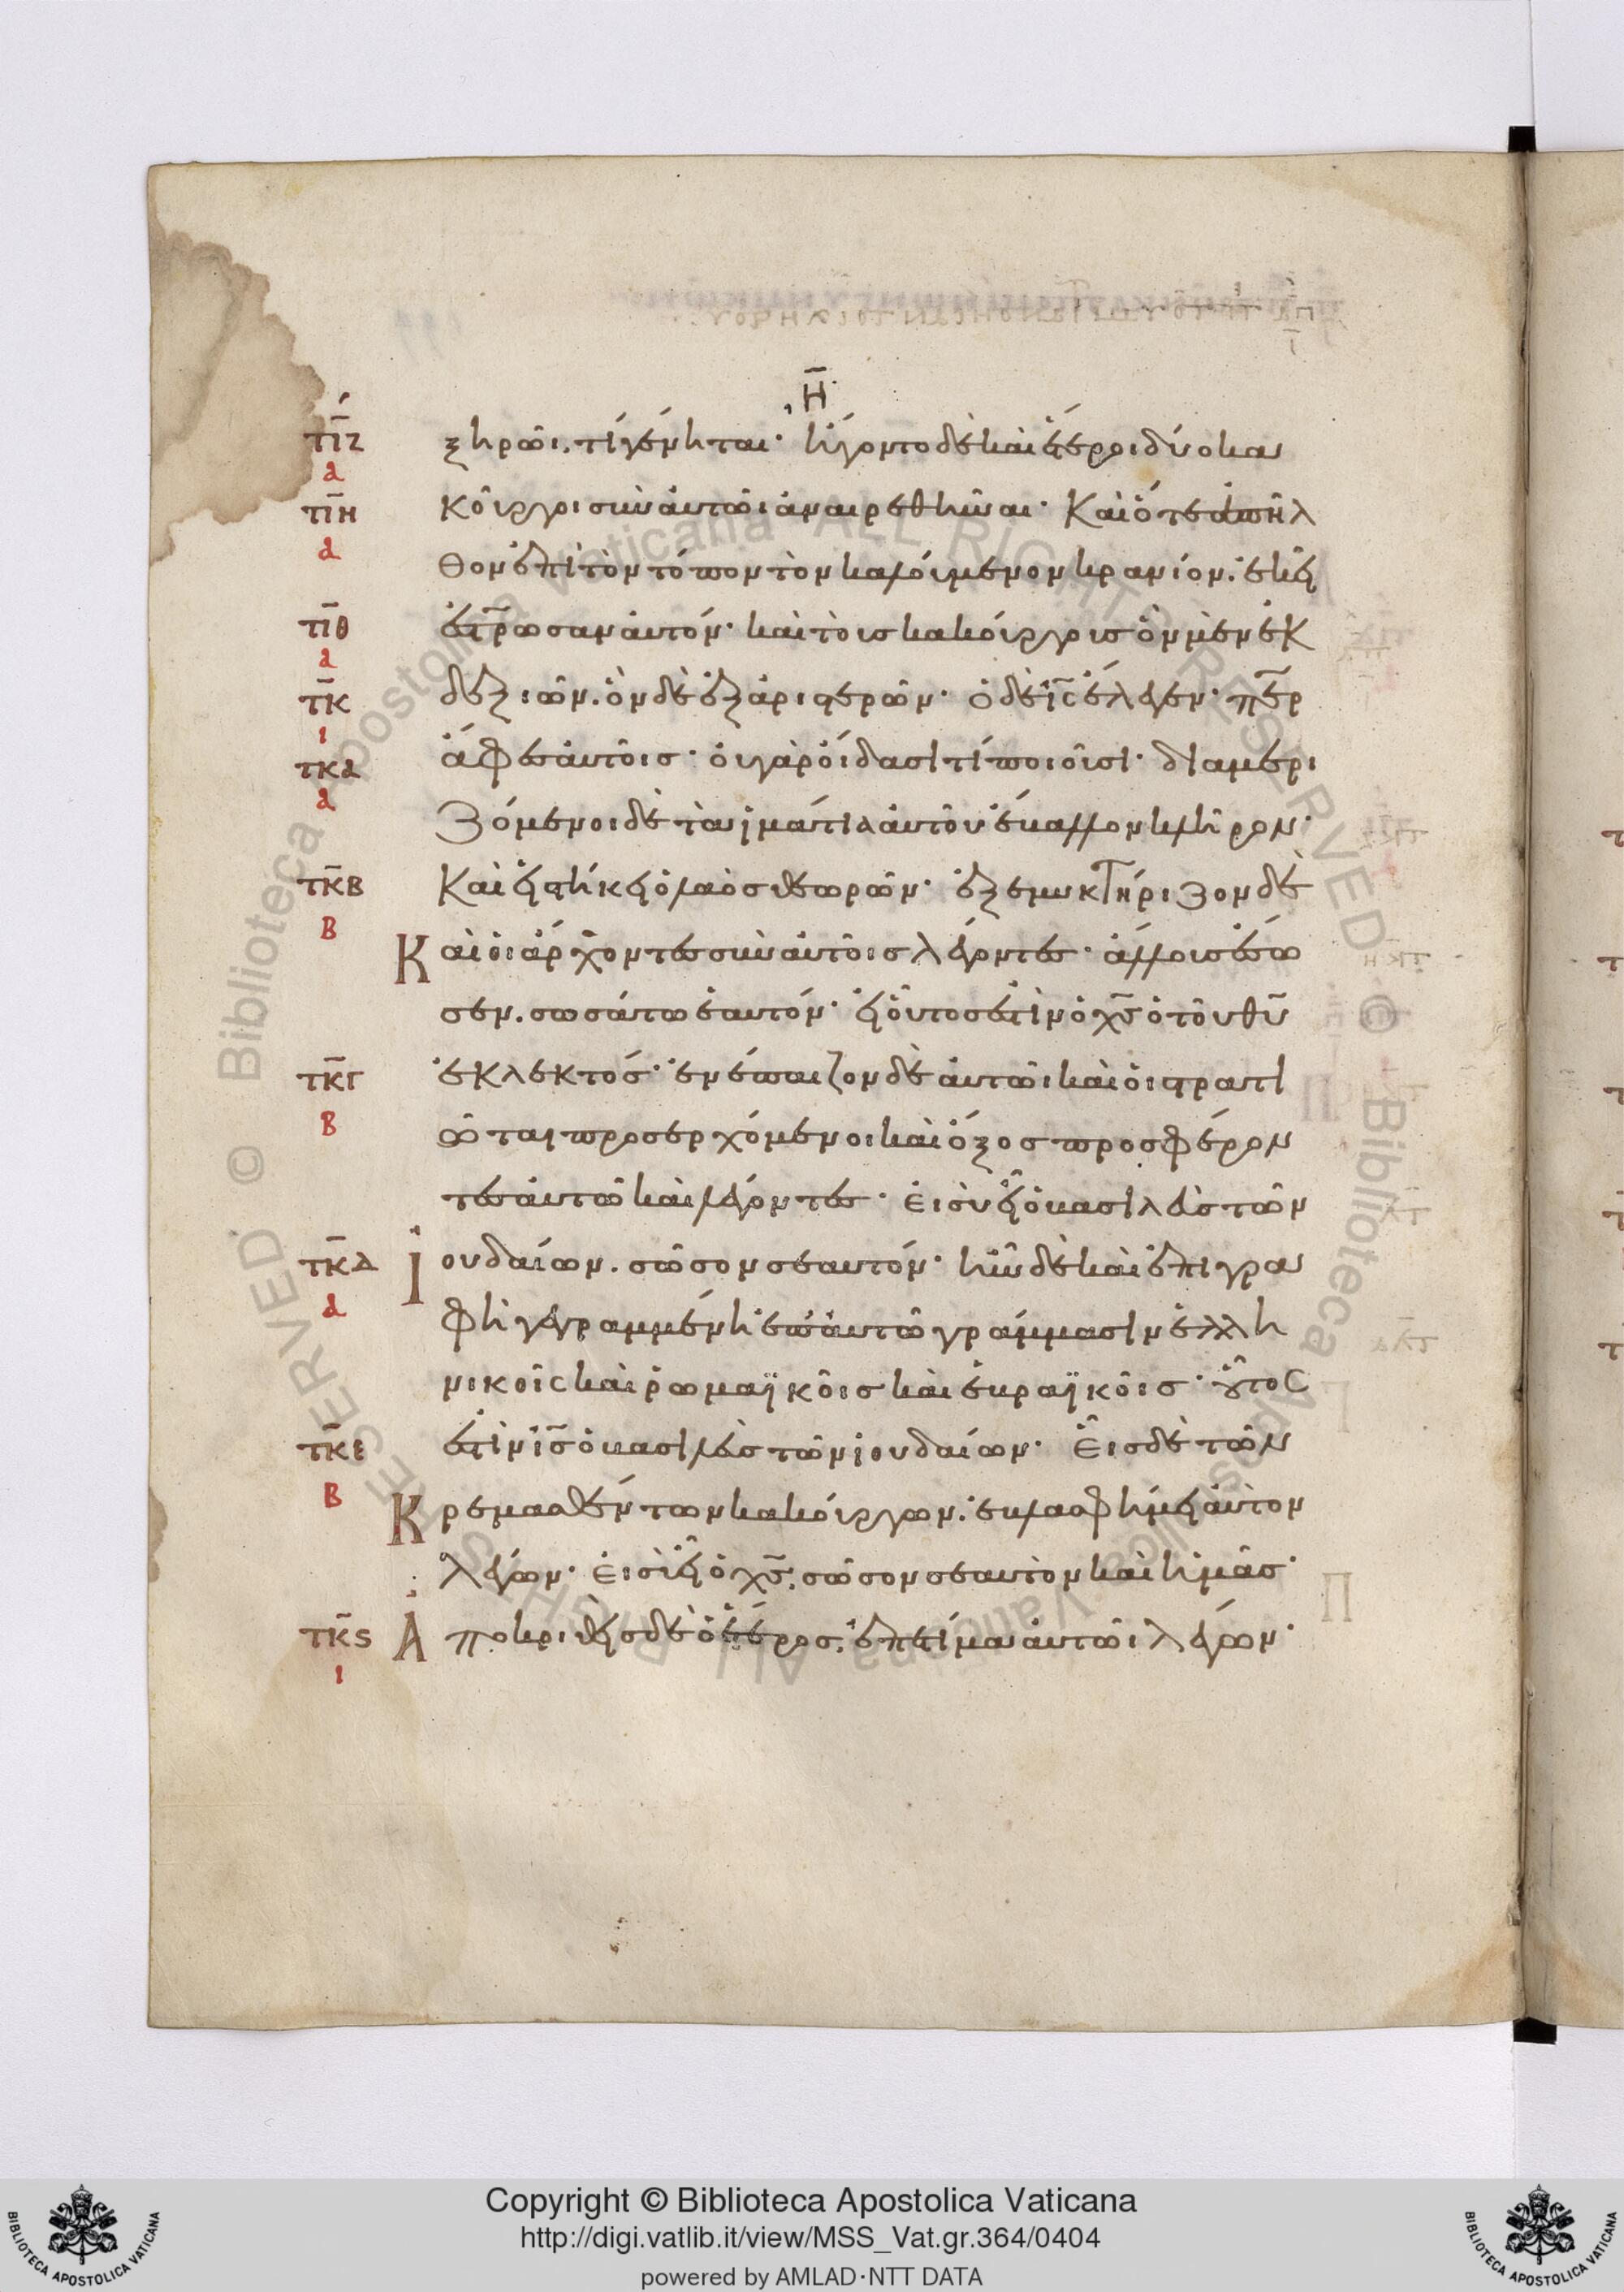 Η
ΤΙΖ ξηρῶι, τί γένηται· ἤγοντο δὲ καὶ ἕτεροι δύο κα
α
ΤΙΗ κοῦργοι σὺν αὐτῶι ἀναιρεθῆναι· Καὶ ὅτε ἀπῆλ
α
θον ἐπὶ τὸν τόπον τὸν καλούμενον κρανίον. ἐκεῖ
ΤΙΘ ἐστρωσαν αὐτόν· καὶ τοὶσ κακούργοισ ὃν μὲν ἐκ
α
ΤΚ δεξιῶν. ὃν δὲ ἐξ ἀριστερῶν· ὁ δὲ ι̅ς̅ ἔλεγεν· πε̅ρ
ι
ΤΚΑ ἄφες αὐτοῖσ· οὐ γὰρ οἴδασι τί ποιοῦσι· διαμερι
α
ζόμενοι δὲ τὰ ἱμάτια αὐτοῦ ἔβαλλον κλῆρον·
ΤΚΒ Καὶ εἱστήκει ὁ λαὸσ θεωρῶν· ἐξεμυκτήριζον δὲ
Β
Καὶ οἱ ἄρχοντες σὺν αὐτοῖσ λέγοντες· ἄλλουσ ἔσω
σεν. σωσάτω ἑαυτόν· εἰ οὗτοσ ἐστὶν ὁ χ̅σ̅ ὁ τοῦ θ̅υ̅
ΤΚΓ ἐκλεκτόσ· ἐνέπαιζον δὲ αὐτῶι καὶ οἱ στρατι
Β
ῶται προσερχόμενοι καὶ ὄξοσ προσφέρον
τες αὐτῶ καὶ λέγοντες· εἰ σὺ εἶ ὁ βασιλεὺσ τῶν
ΤΚΔ Ἰουδαίων. σῶσον σεαυτόν· ἦν δὲ καὶ ἐπιγρα
α
φὴ γεγραμμένη ἐπ' αὐτῶ γράμμασιν ἑλλη
νικοῖς καὶ ῥωμαϊκοῖσ καὶ ἑβραϊκοῖσ· οὗτος
ΤΚΕ ἐστὶν ι̅σ̅ ὁ βασιλεὺσ τῶν ἰουδαίων· Εἷσ δὲ τῶν
Β
Κρεμασθέντων κακούργων. ἐβλασφήμει αὐτὸν
λέγων· εἰ σὺ εἶ ὁ χ̅σ̅. σῶσον σεαυτὸν καὶ ἡμᾶσ·
ΤΚS Ἀποκριθεὶσ δὲ ὁ ἕτεροσ. ἐπετίμα αὐτῶι λέγων·
ι
© Biblioteca Apostolica Vaticana ALL RIGHTS RESERVED © Biblioteca Apostolica Vaticana ALL RIGHTS RESERVED
Copyright © Biblioteca Apostolica Vaticana
http://digi.vatlib.it/view/MSS_Vat.gr.364/0404
powered by AMLAD·NTT DATA
BIBLIOTECA APOSTOLICA VATICANA
BIBLIOTECA APOSTOLICA VATICANA